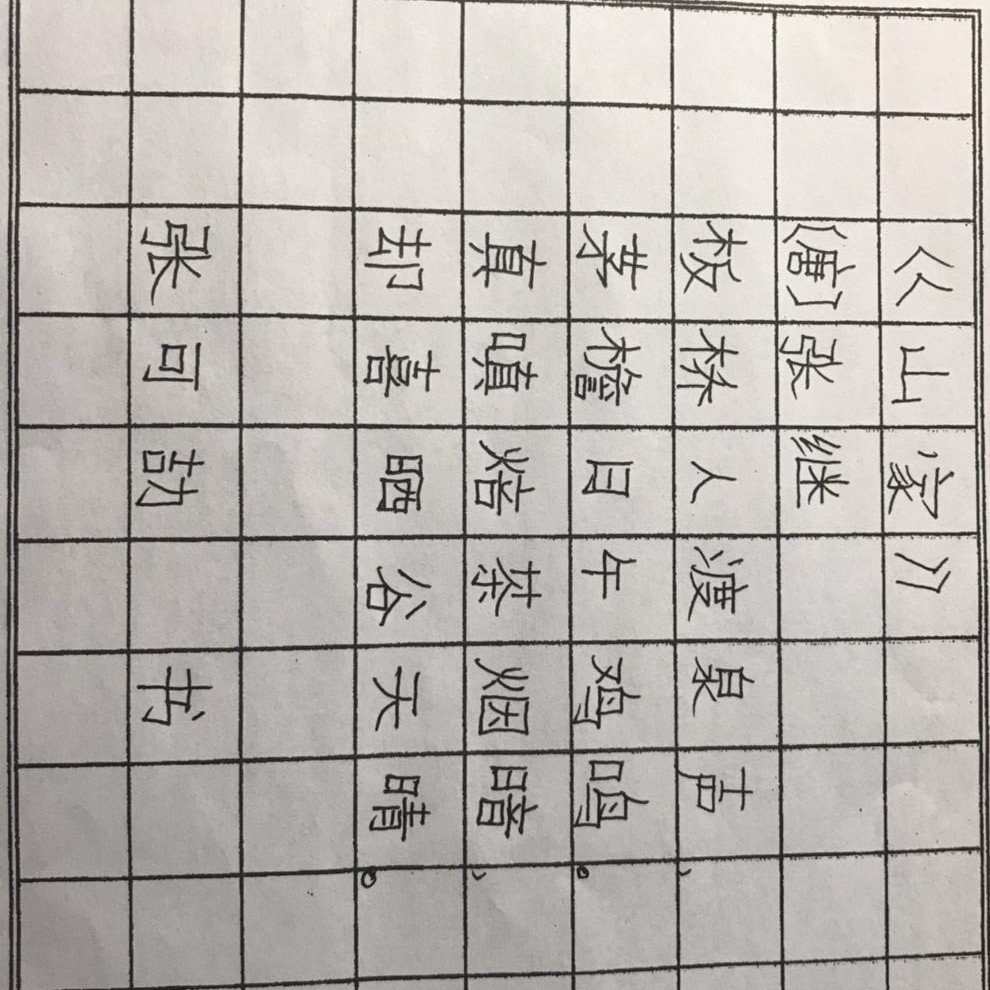 《山家》
(唐)张继
板桥人渡泉声,
茅檐日午鸡鸣。
真嗔焙茶烟暗,
却喜晒谷天晴。
张可劼 书